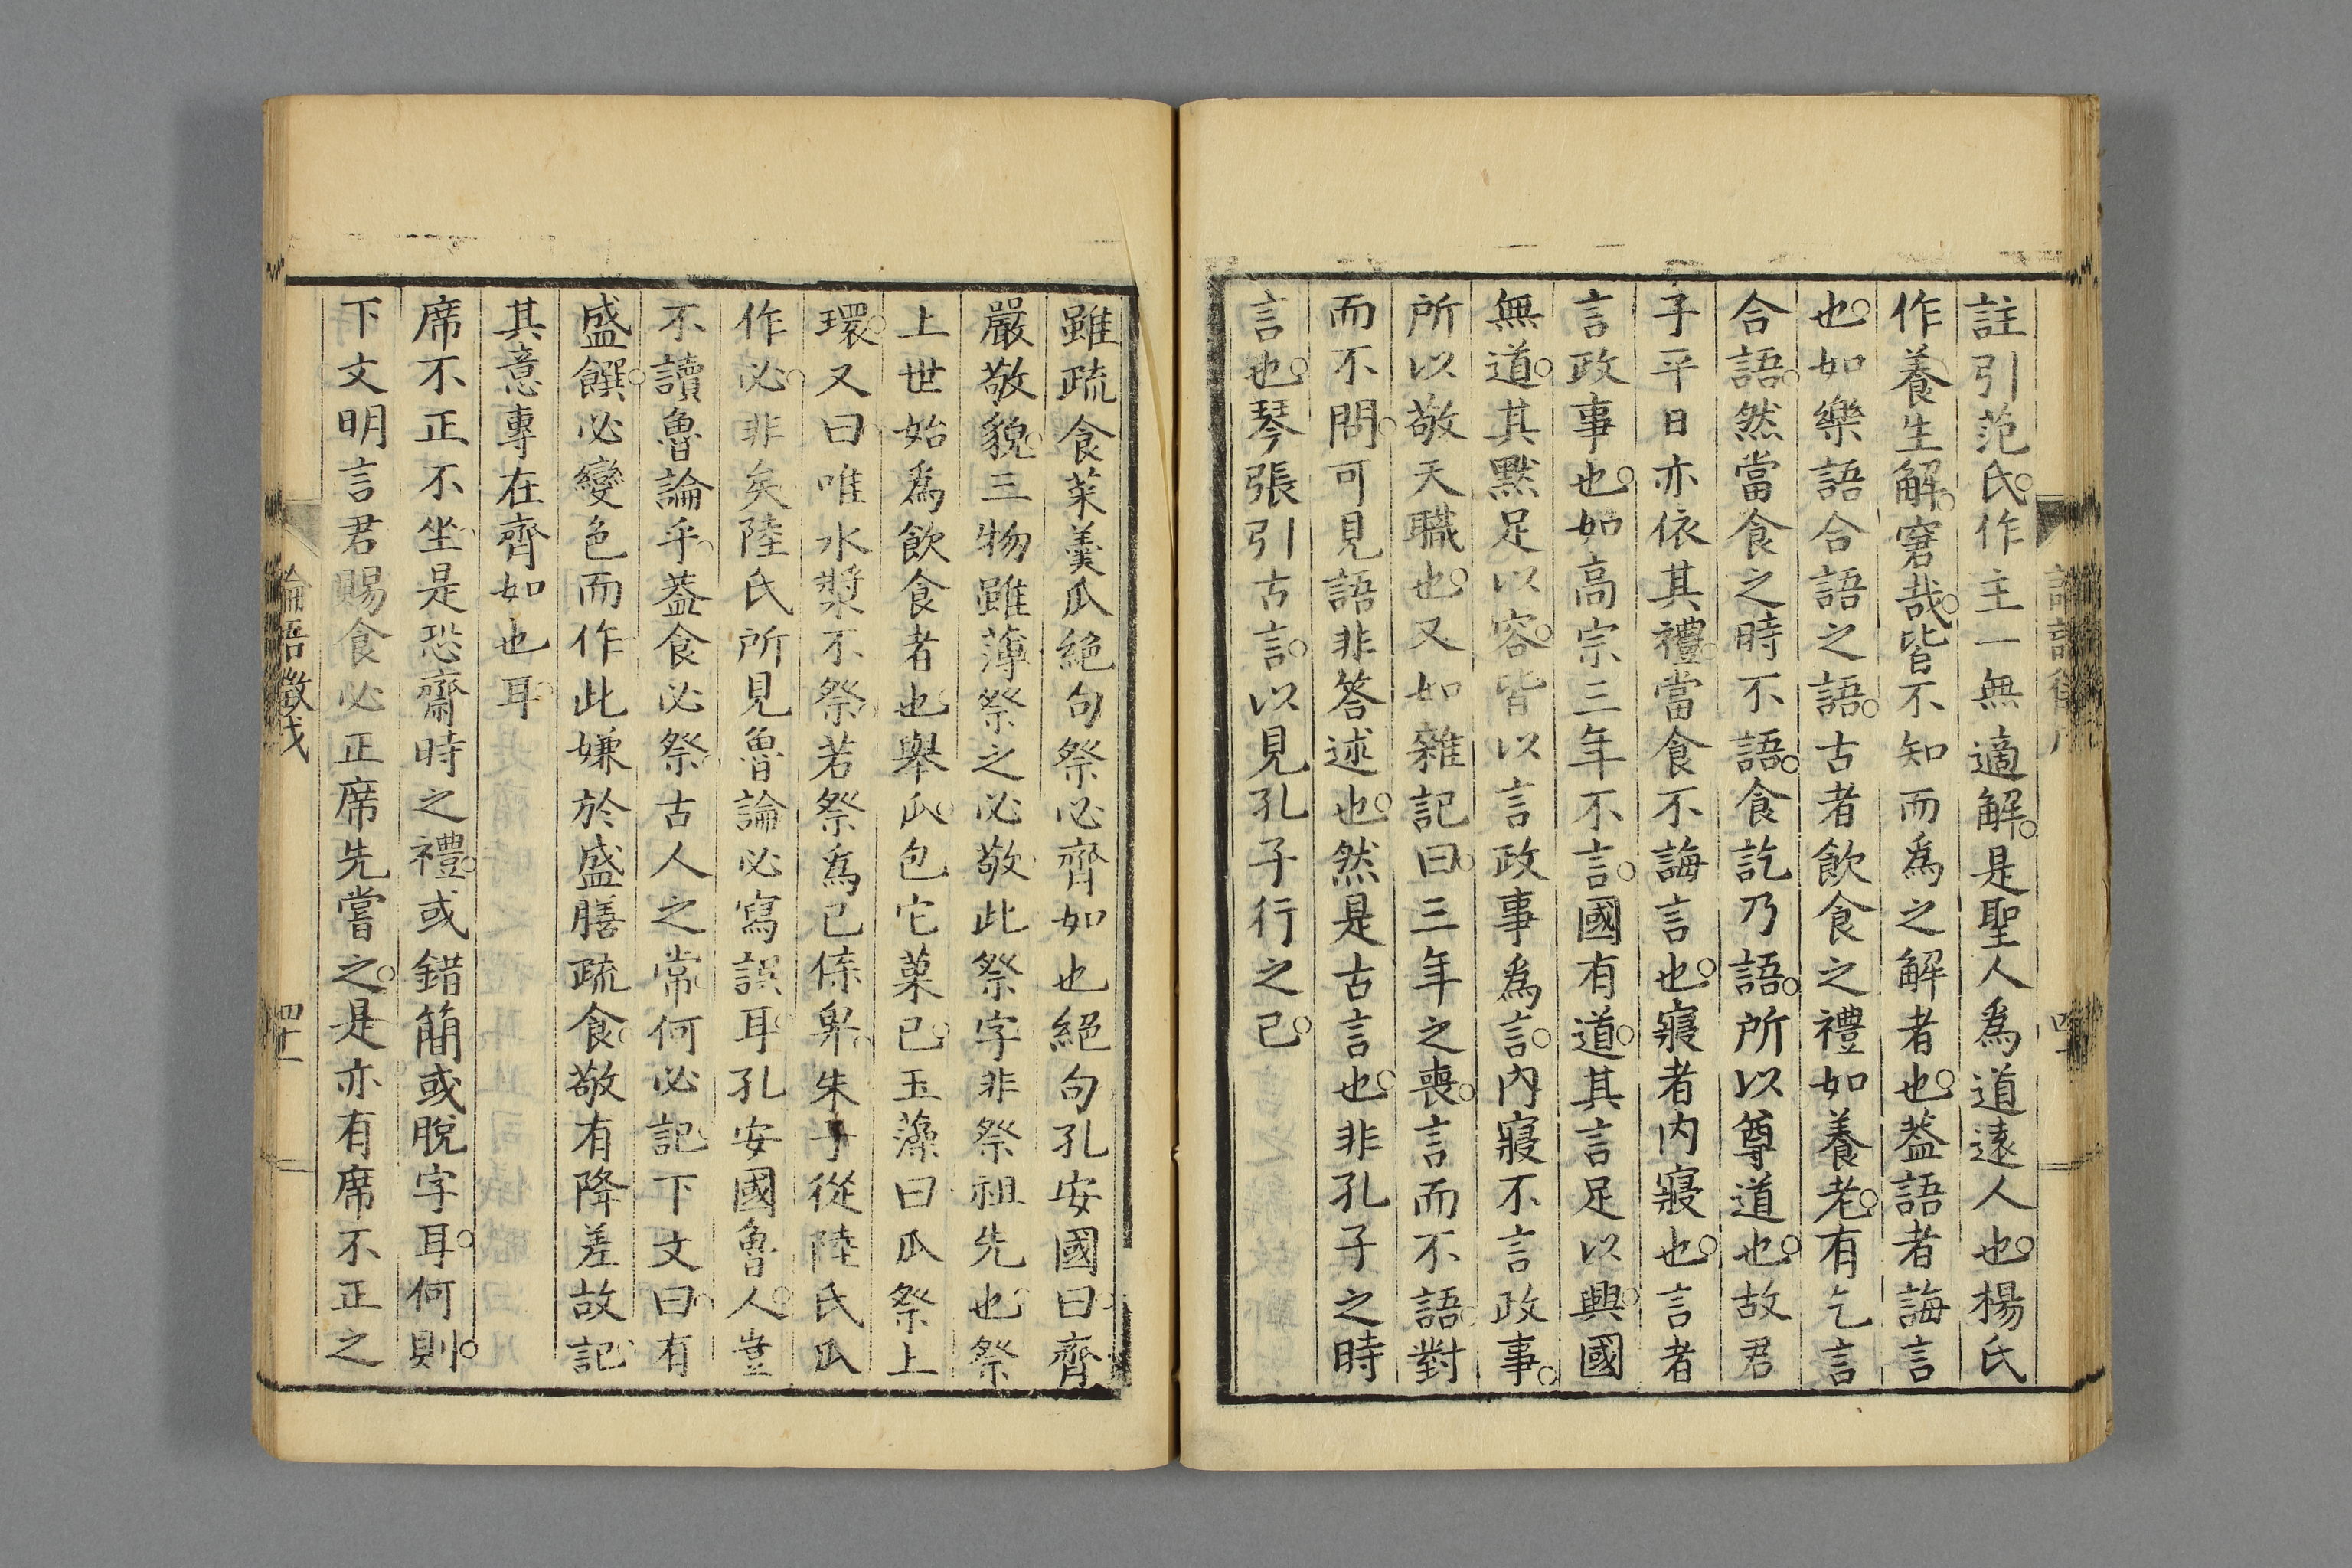 註引范氏作主一無適解是聖人為道遠人也楊氏
作養生解窘哉皆不知而為之解者也葢語者誨言
也如樂語合語之語古者飲食之禮如養老有乞言
合語然當食之時不語食訖乃語所以尊道也故君
子平日亦依其禮當食不誨言也寢者內寢也言者
言政事也如高宗三年不言國有道其言足以興國
無道其默足以容皆以言政事為言內寢不言政事
所以敬天職也又如雜記曰三年之喪言而不語對
而不問可見語非答述也然是古言也非孔子之時
言也琴張引古言以見孔子行之已
雖疏食菜羹瓜絕句祭必齊如也絕句孔安國曰齊
嚴敬貌三物雖薄祭之必敬此祭字非祭祖先也祭
上世始為飲食者也舉瓜包它菓已玉藻曰瓜祭上
環又曰唯水漿不祭若祭為已傣卑朱子從陸氏瓜
作必非矣陸氏所見魯論必寫誤耳孔安國魯人豈
不讀魯論乎葢食必祭古人之常何必記下文曰有
盛饌必變色而作此嫌於盛膳疏食敬有降差故記
其意專在齊如也耳
席不正不坐是恐齋時之禮或錯簡或脫字耳何則
下文明言君賜食必正席先嘗之是亦有席不正之
論語徵戊